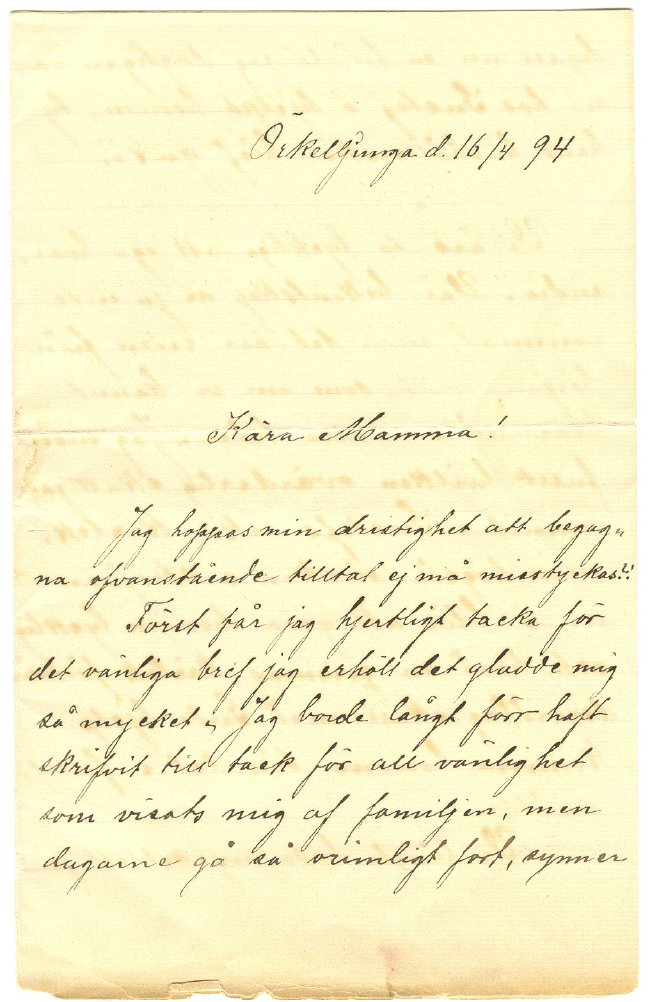 Örkelljunga d. 16/4 94
Kära Mamma!
Jag hoppas min dristighet att begag„
na ofvanstående tilltal ej må misstyckas?!
Först får jag hjertligt tacka för
det vänliga bref jag erhöll det gladde mig
så mycket, Jag borde långt förr haft
skrifvit till tack för all vänlighet
som visats mig af familjen, men
dagarne gå så orimligt fort, synner